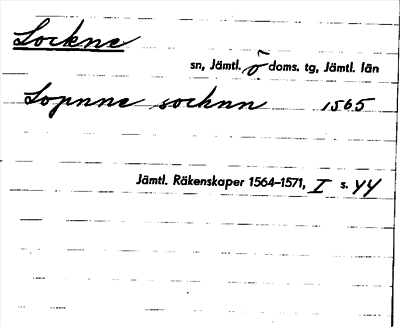 Lockne
sn, Jämtl. ö doms. tg, Jämtl. län
Lopnne sochnn 1565
Jämtl. Räkenskaper 1564–1571, I s. 44